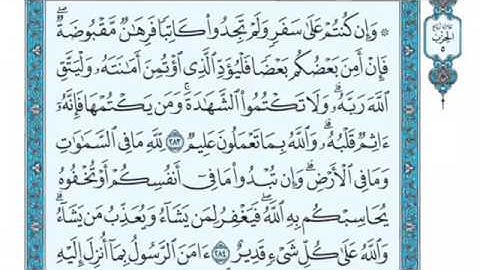 ۞ وَإِن كُنتُمْ عَلَىٰ سَفَرٍ وَلَمْ تَجِدُوا۟ كَاتِبًا فَرِهَٰنٌ مَّقْبُوضَةٌ ۖ
فَإِنْ أَمِنَ بَعْضُكُم بَعْضًا فَلْيُؤَدِّ ٱلَّذِى ٱؤْتُمِنَ أَمَٰنَتَهُۥ وَلْيَتَّقِ
ٱللَّهَ رَبَّهُۥ ۗ وَلَا تَكْتُمُوا۟ ٱلشَّهَٰدَةَ ۚ وَمَن يَكْتُمْهَا فَإِنَّهُۥٓ
ءَاثِمٌ قَلْبُهُۥ ۗ وَٱللَّهُ بِمَا تَعْمَلُونَ عَلِيمٌ ٢٨٣ لِّلَّهِ مَا فِى ٱلسَّمَٰوَٰتِ
وَمَا فِى ٱلْأَرْضِ ۗ وَإِن تُبْدُوا۟ مَا فِىٓ أَنفُسِكُمْ أَوْ تُخْفُوهُ
يُحَاسِبْكُم بِهِ ٱللَّهُ ۖ فَيَغْفِرُ لِمَن يَشَآءُ وَيُعَذِّبُ مَن يَشَآءُ ۗ
وَٱللَّهُ عَلَىٰ كُلِّ شَىْءٍ قَدِيرٌ ٢٨٤ ءَامَنَ ٱلرَّسُولُ بِمَآ أُنزِلَ إِلَيْهِ
الحزب
٥